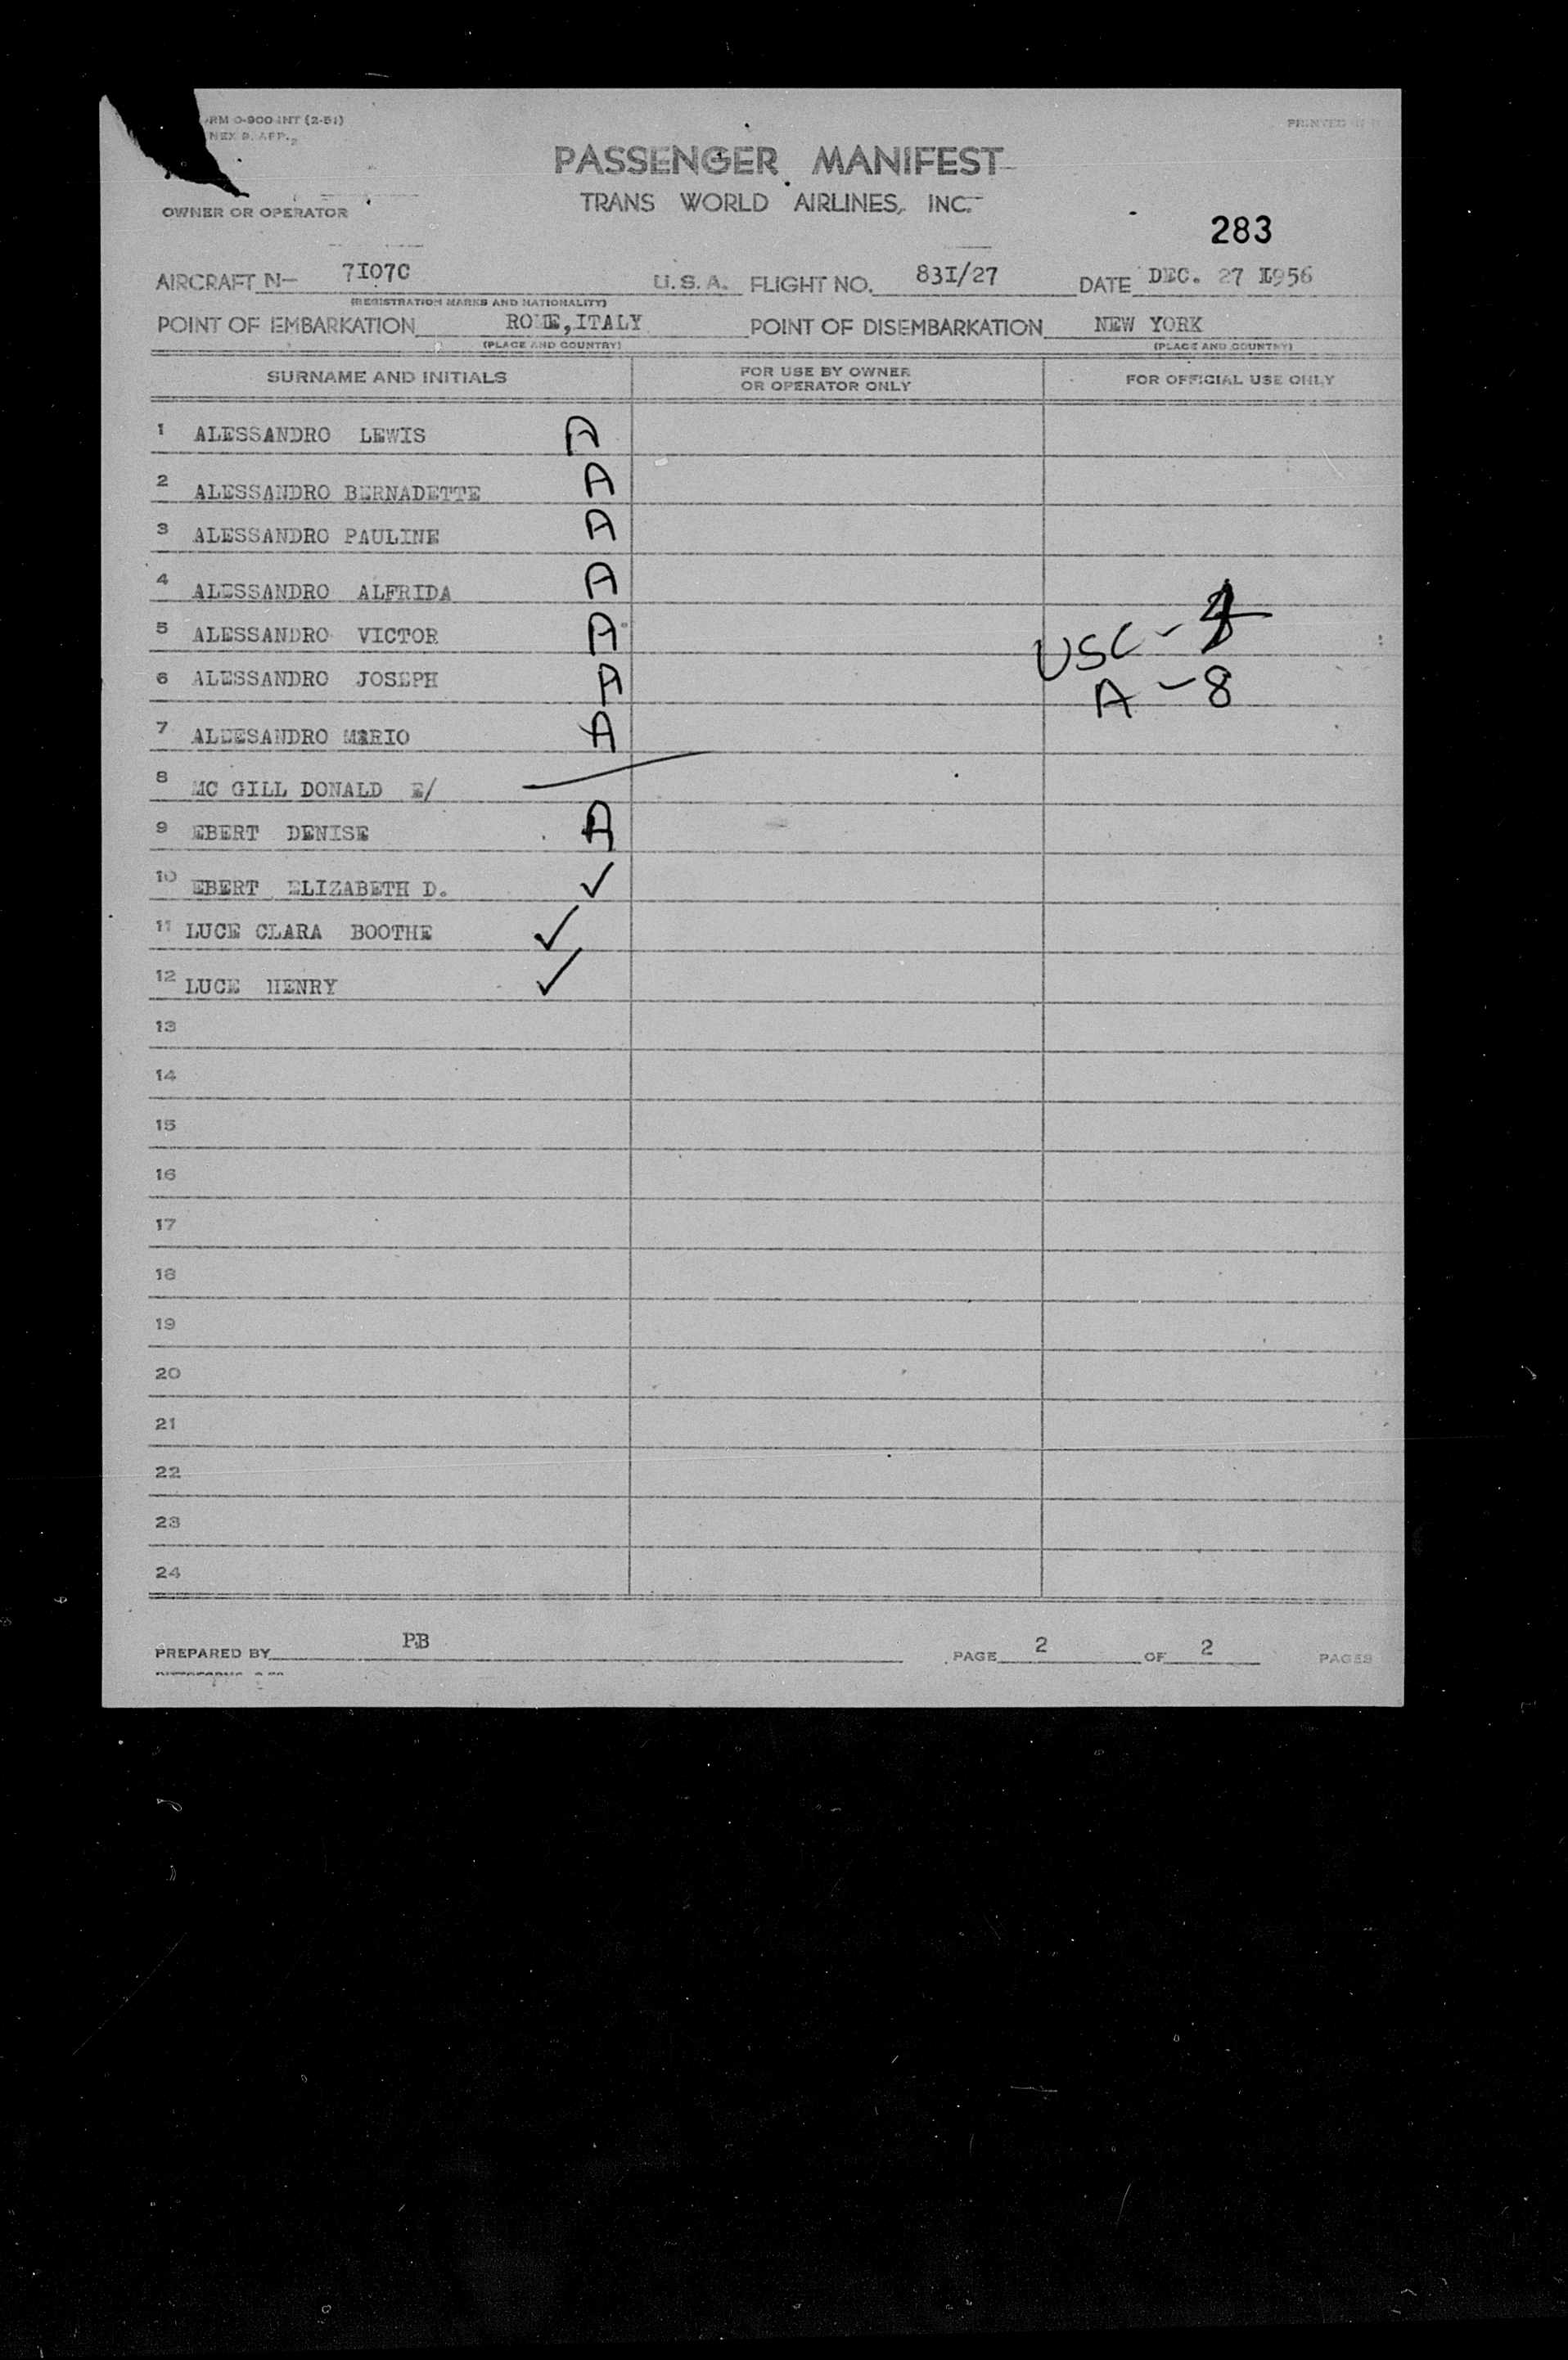 ORM O-900-INT (2-51)
NEX 9. APP. 2
PRINTED IN
PASSENGER MANIFEST
TRANS WORLD AIRLINES, INC.
OWNER OR OPERATOR
283
AIRCRAFT N- 7I07C U.S.A. FLIGHT NO. 83I/27 DATE DEC. 27 I956
(REGISTRATION MARKS AND NATIONALITY)
POINT OF EMBARKATION ROME,ITALY POINT OF DISEMBARKATION NEW YORK
(PLACE AND COUNTRY) (PLACE AND COUNTRY)
SURNAME AND INITIALS FOR USE BY OWNER OR OPERATOR ONLY FOR OFFICIAL USE ONLY
1 ALESSANDRO LEWIS A
2 ALESSANDRO BERNADETTE A
3 ALESSANDRO PAULINE A
4 ALESSANDRO ALFRIDA A
5 ALESSANDRO VICTOR A USC -
6 ALESSANDRO JOSEPH A A - 8
7 ALESSANDRO MARIO A
8 MC GILL DONALD E/
9 EBERT DENISE A
10 EBERT ELIZABETH D. ✓
11 LUCE CLARA BOOTHE ✓
12 LUCE HENRY ✓
13
14
15
16
17
18
19
20
21
22
23
24
PREPARED BY PB PAGE 2 OF 2 PAGES